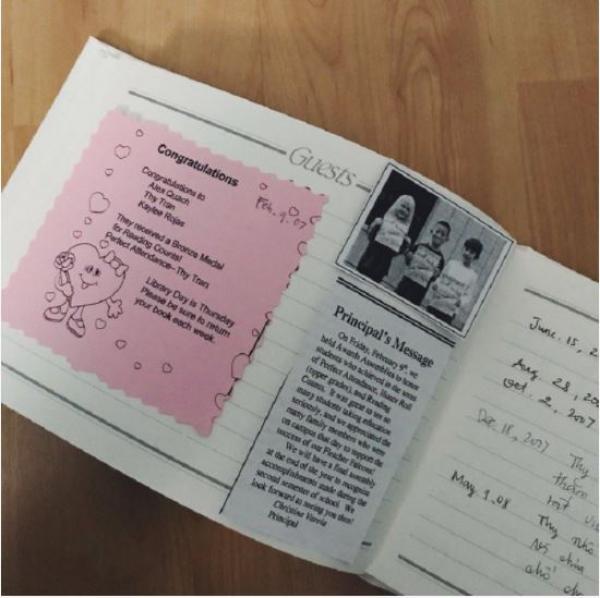 Guests
Feb. 9. 07
Congratulations
Congratulations to
Alex Quach
Thy Tran
Kaylee Rojas
They received a Bronze Medal
for Reading Counts!
Perfect Attendance~Thy Tran
Library Day is Thursday
Please be sure to return
your book each week.
Principal's Message
On Friday, February 9th, we
held Awards Assemblies to honor
students who achieved in the areas
of Perfect Attendance, Honor Roll
(upper grades), and Reading
Counts. It was great to see so
many students taking education
seriously, and we appreciated the
many family members who were
on campus that day to support the
success of our Fletcher Falcons!
We will have a final assembly
at the end of the year to recognize
accomplishments made during the
second semester of school. We
look forward to seeing you then!
Principal
June. 15, 2
Aug. 28, 200
Oct. 2, 2007
Dec. 18, 2007 Thy
thăm
rất
May. 9. 08
Thy nhổ